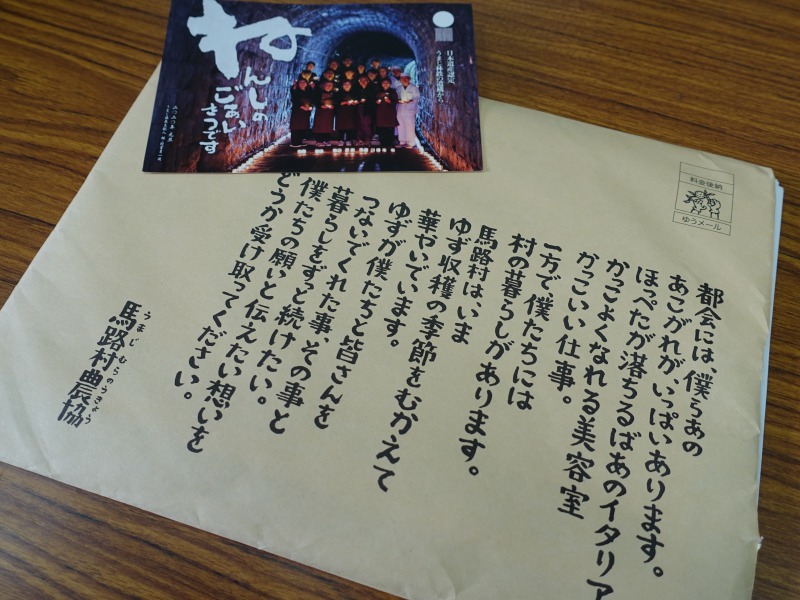 ねんしの
ごあい
さつです
日本遺産認定、
うまじ森鉄の隧道から
料金後納
ゆうメール
都会には、僕らあの
あこがれが、いっぱいあります。
ほっぺたが落ちるばあのイタリア
かっこよくなれる美容室
かっこいい仕事。
一方で僕たちには
村の暮らしがあります。
馬路村はいま
ゆず収穫の季節をむかえて
華やいでいます。
ゆずが僕たちと皆さんを
つないでくれた事、その事と
暮らしをずっと続けたい。
僕たちの願いと伝えたい想いを
どうか受け取ってください。
馬路村農協
うまじむらのうきょう